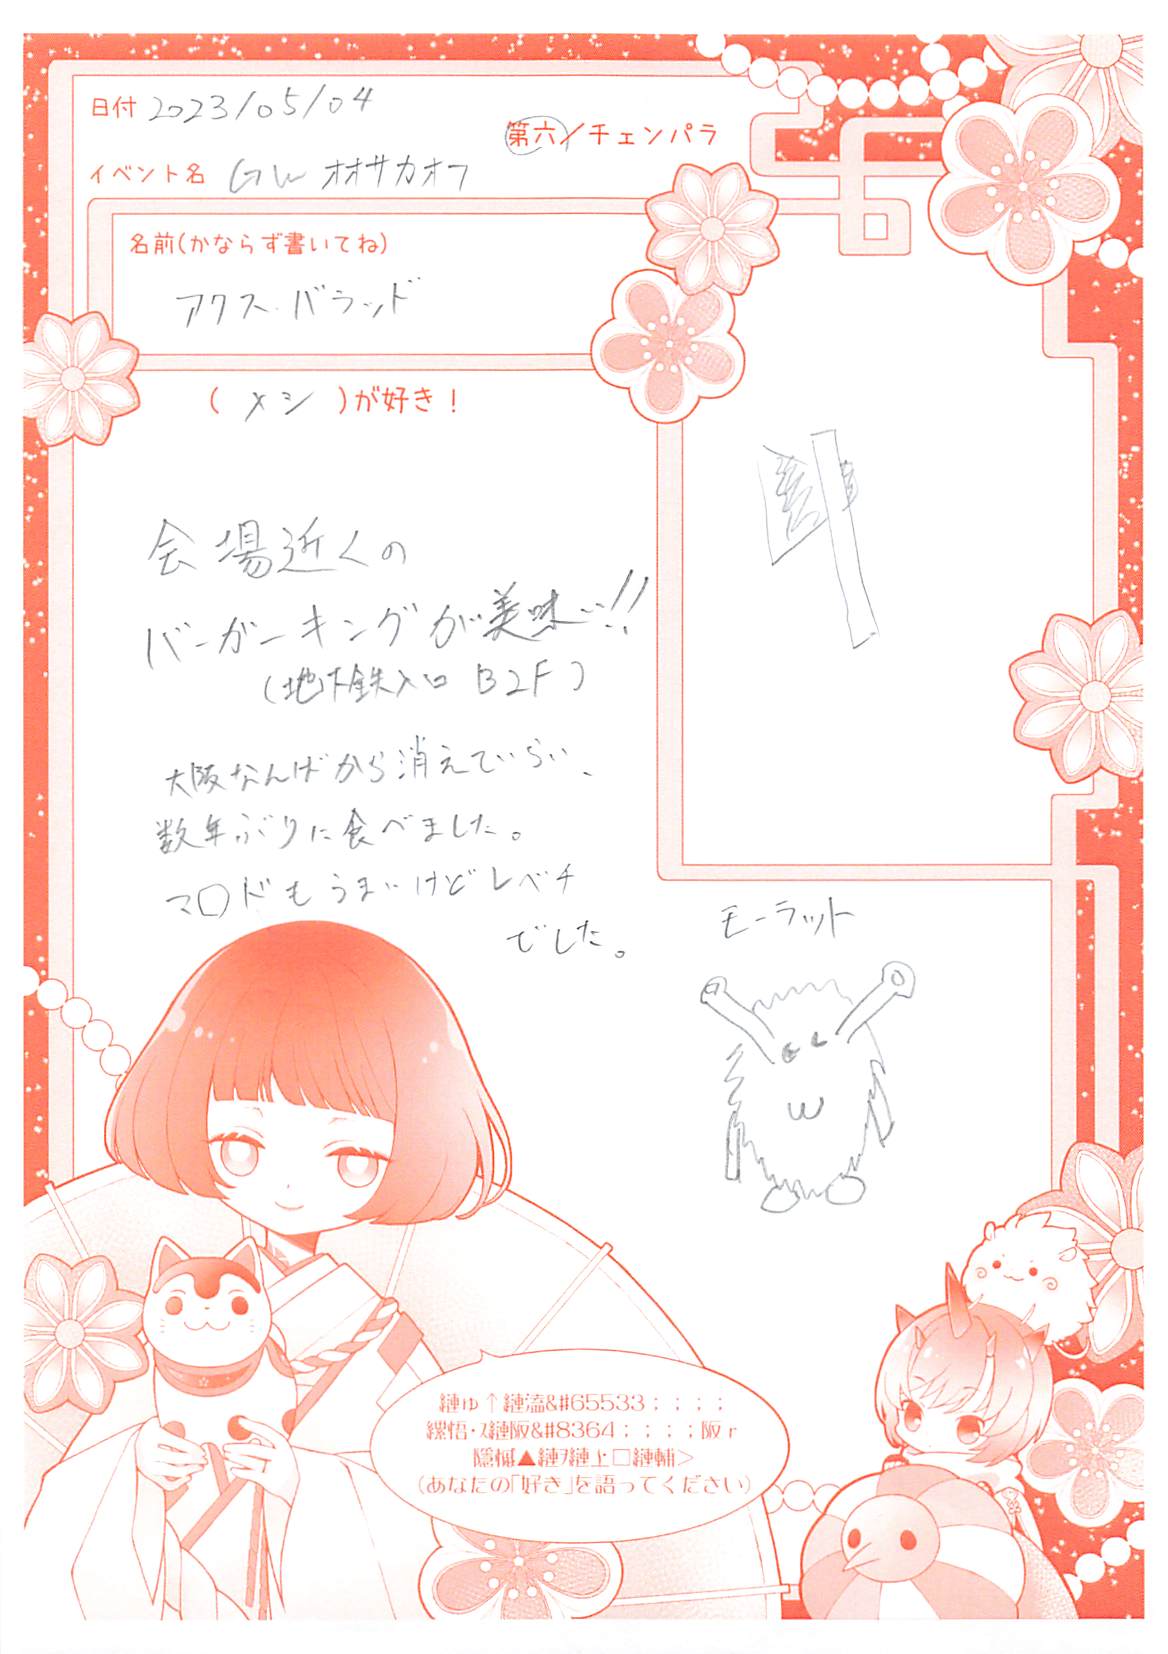 日付 2023/05/04
第六/チェンパラ
イベント名 GW オオサカオフ
名前(かならず書いてね)
アクス・バラッド
(メシ)が好き!
会場近くの
バーガーキングが美味い!!
(地下鉄入口 B2F)
大阪なんばから消えていらい、
数年ぶりに食べました。
マ〇ドもうまいけどレベチ
でした。
モーラット
縺ゅ↑縺溘&#65533;;;;;
縲悟・ｽ縺阪&#8364;;;;;阪ｒ
隱槭▲縺ｦ縺上□縺輔>
(あなたの「好き」を語ってください)